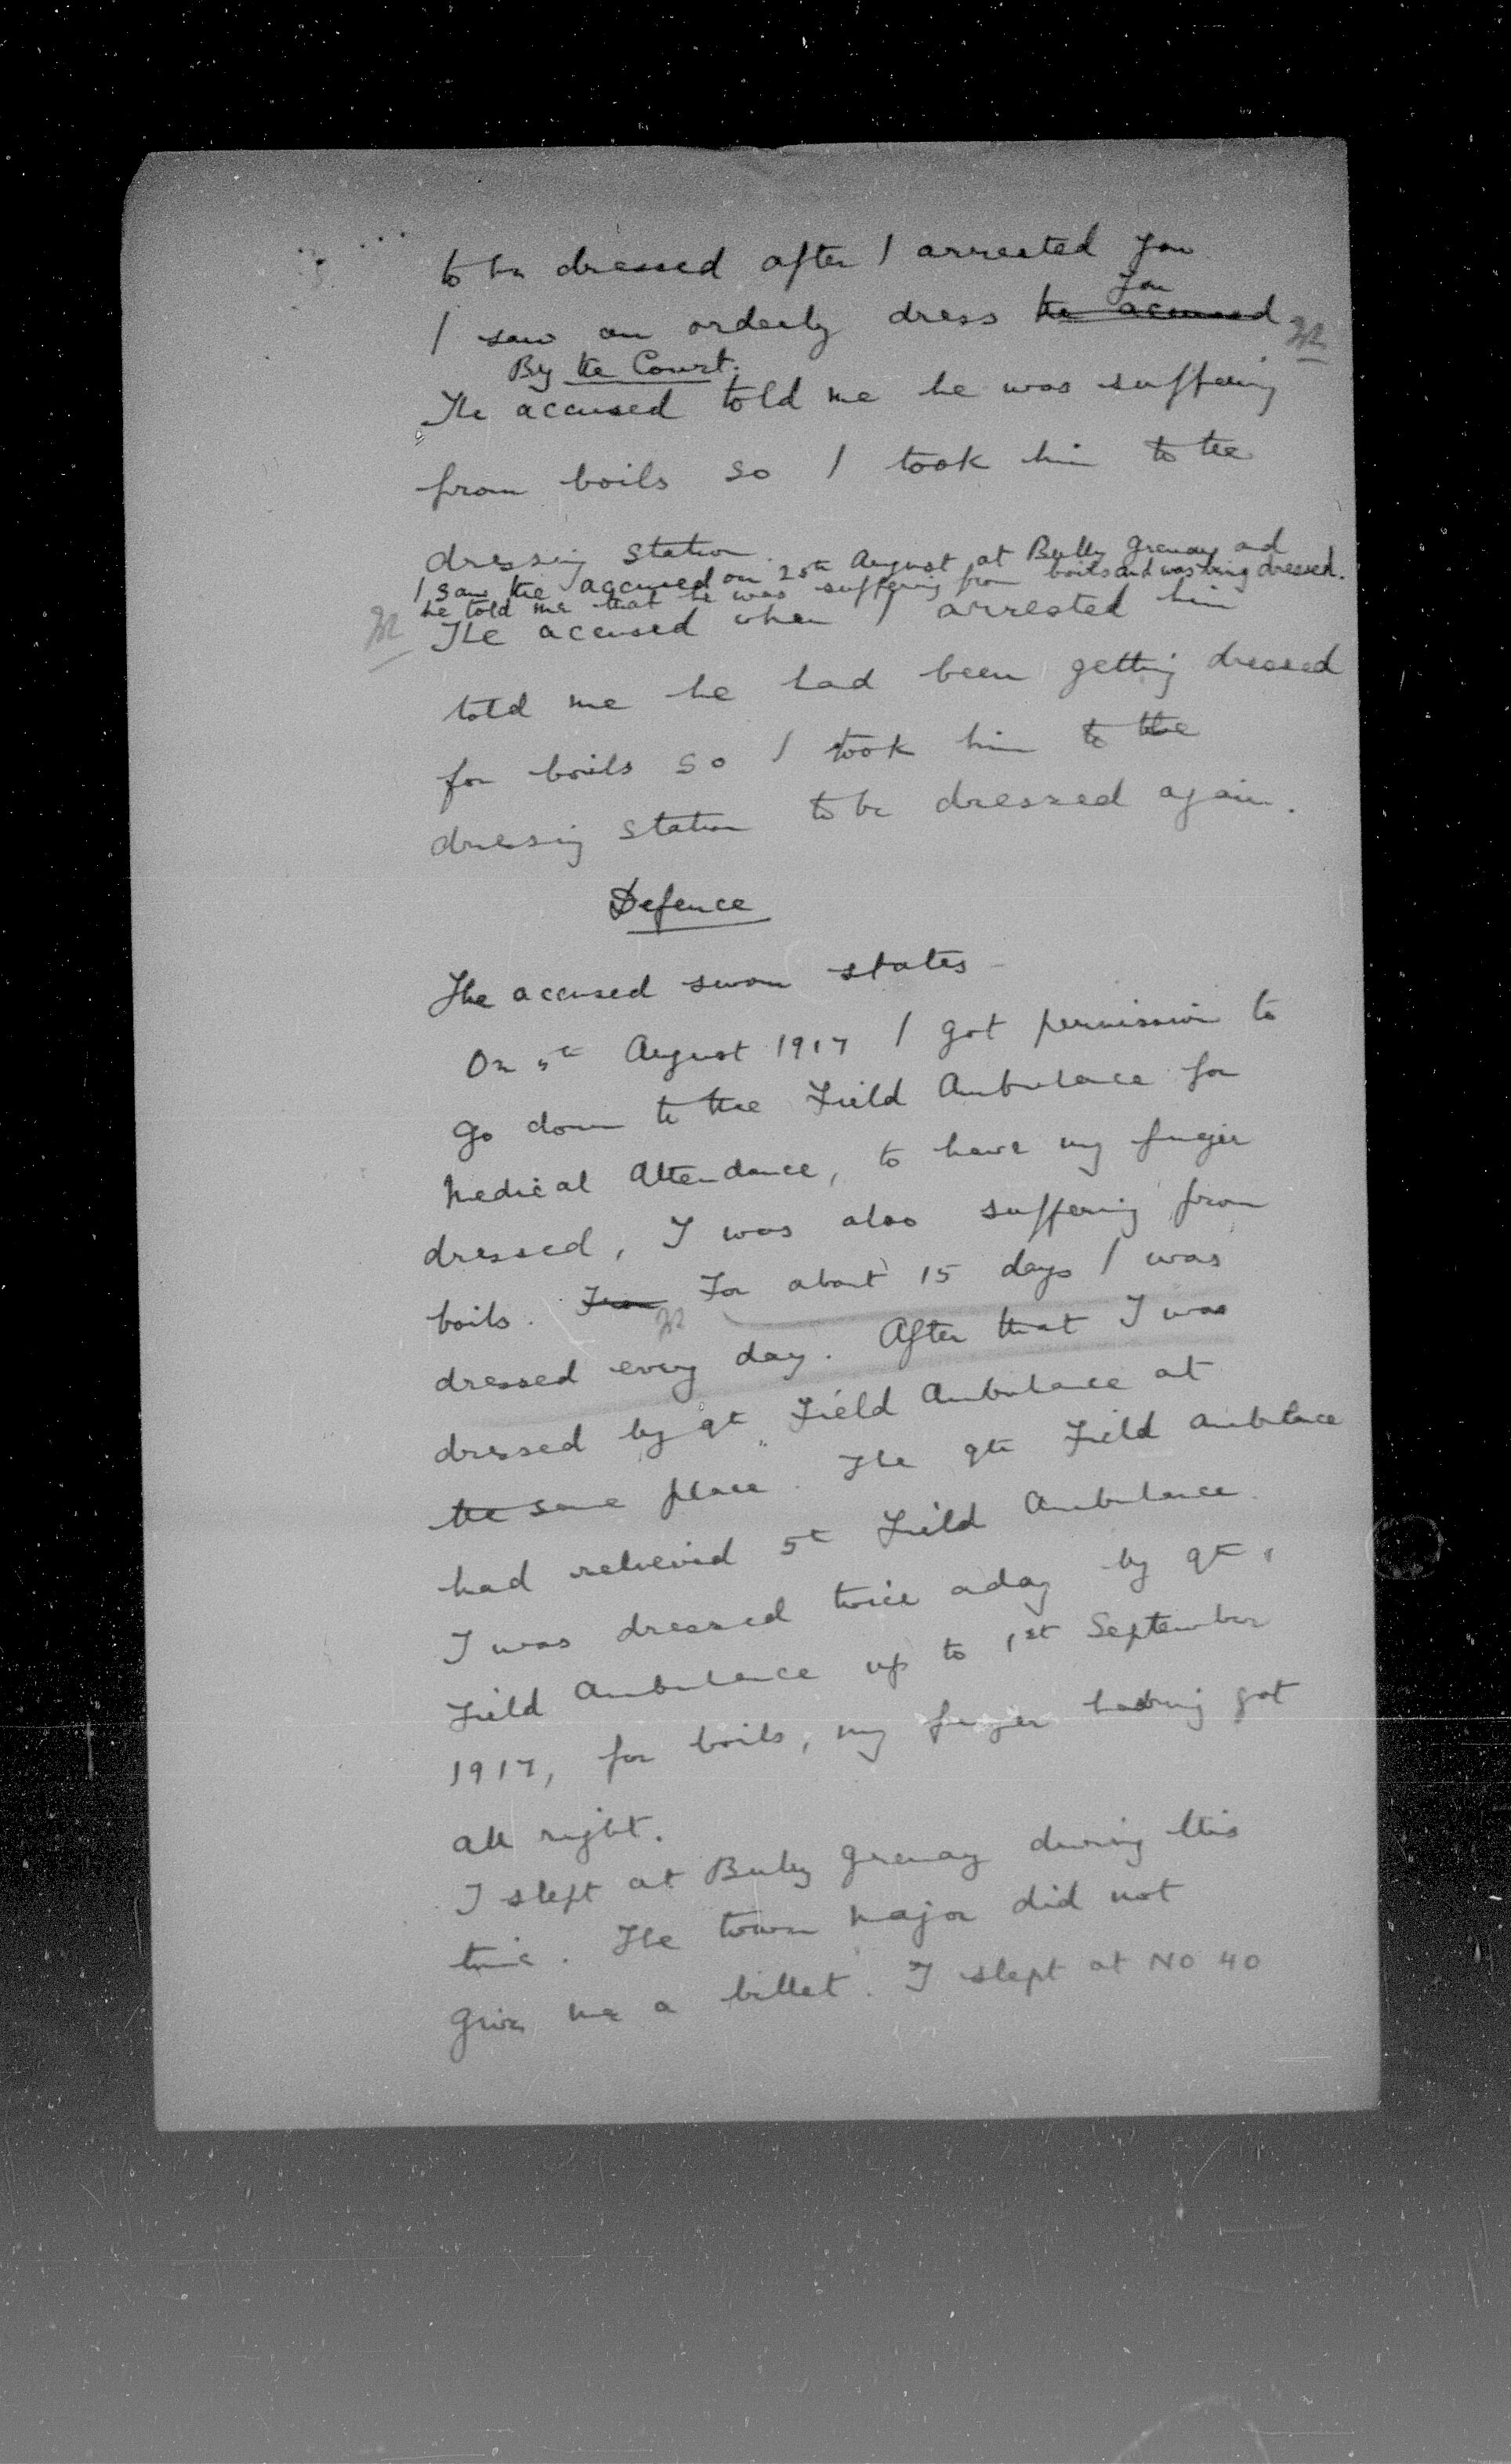 to be dressed after I arrested you
you
I saw an orderly dress the accused
By the Court.
The accused told me he was suffering
from boils so I took him to the
dressing station.
I saw the accused on 25th August at Bully Grenay and
he told me that he was suffering from boils and was being dressed.
The accused when I arrested him
told me he had been getting dressed
for boils so I took him to the
dressing station to be dressed again.
Defence
The accused sworn states -
On 5th August 1917 I got permission to
go down to the Field Ambulance for
Medical Attendance, to have my finger
dressed, I was also suffering from
boils. From For about 15 days I was
dressed every day. After that I was
dressed by 9th Field Ambulance at
the same place. The 9th Field Ambulance
had relieved 5th Field Ambulance.
I was dressed twice a day by 9th
Field Ambulance up to 1st September
1917, for boils, my finger having got
all right.
I slept at Bully Grenay during this
time. The town Major did not
give me a billet. I slept at No 40